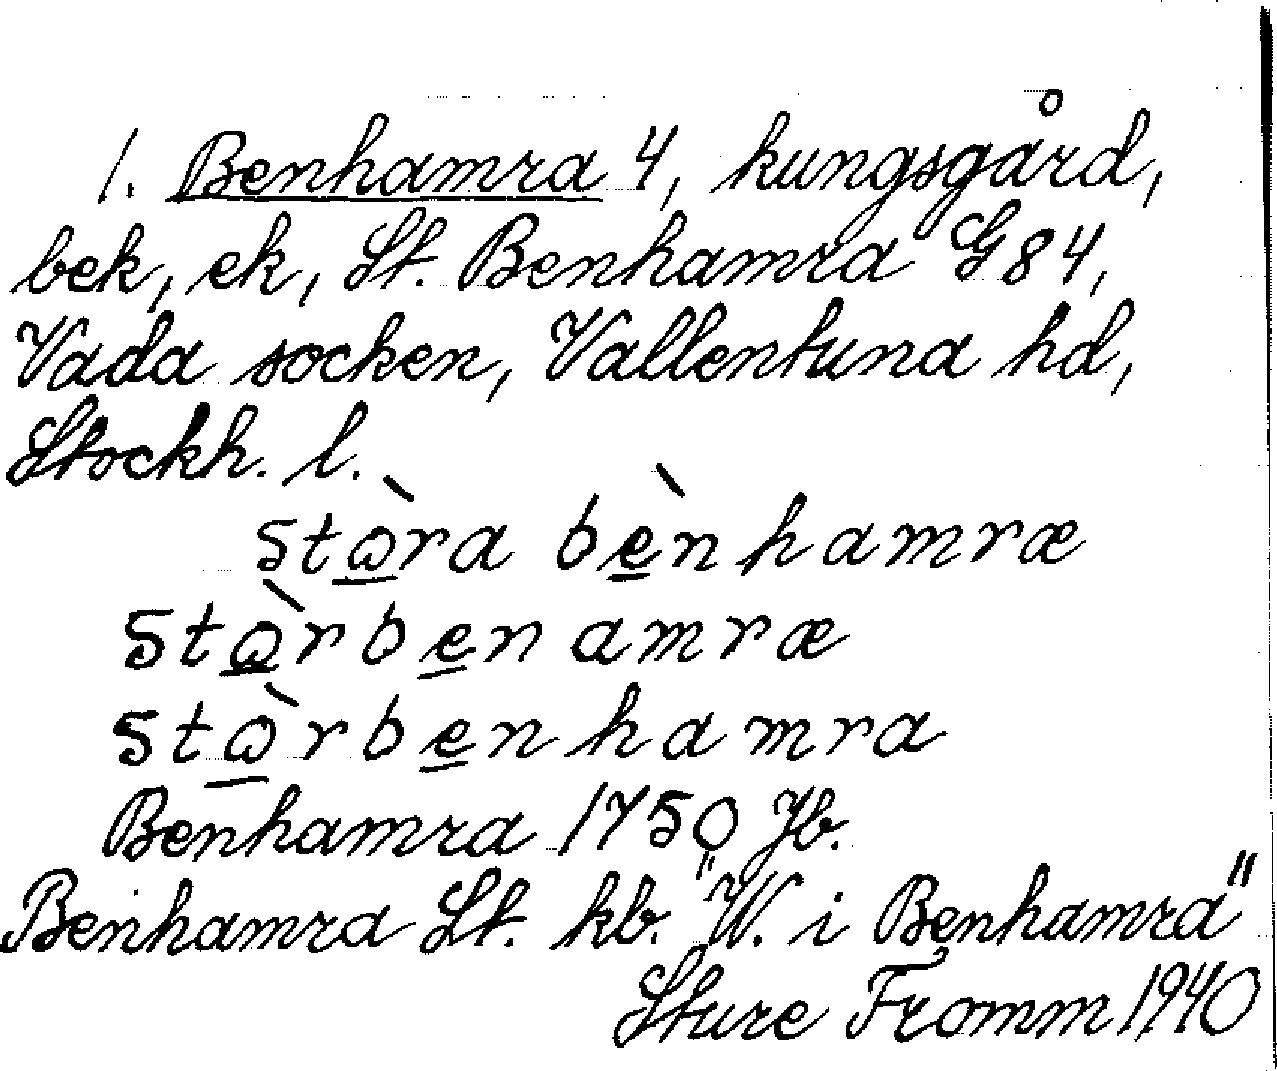 1. Benhamra 4, kungsgård,
bek, ek, St. Benhamra G84,
Vada socken, Vallentuna hd,
Stockh. l.
stò̠ra bè̠nhamræ
stò̠rbe̠namræ
stò̠rbe̠nhamra
Benhamra 1750 Jb.
Benhamra St. kb. "W. i Benhamra"
Sture Fromm 1940